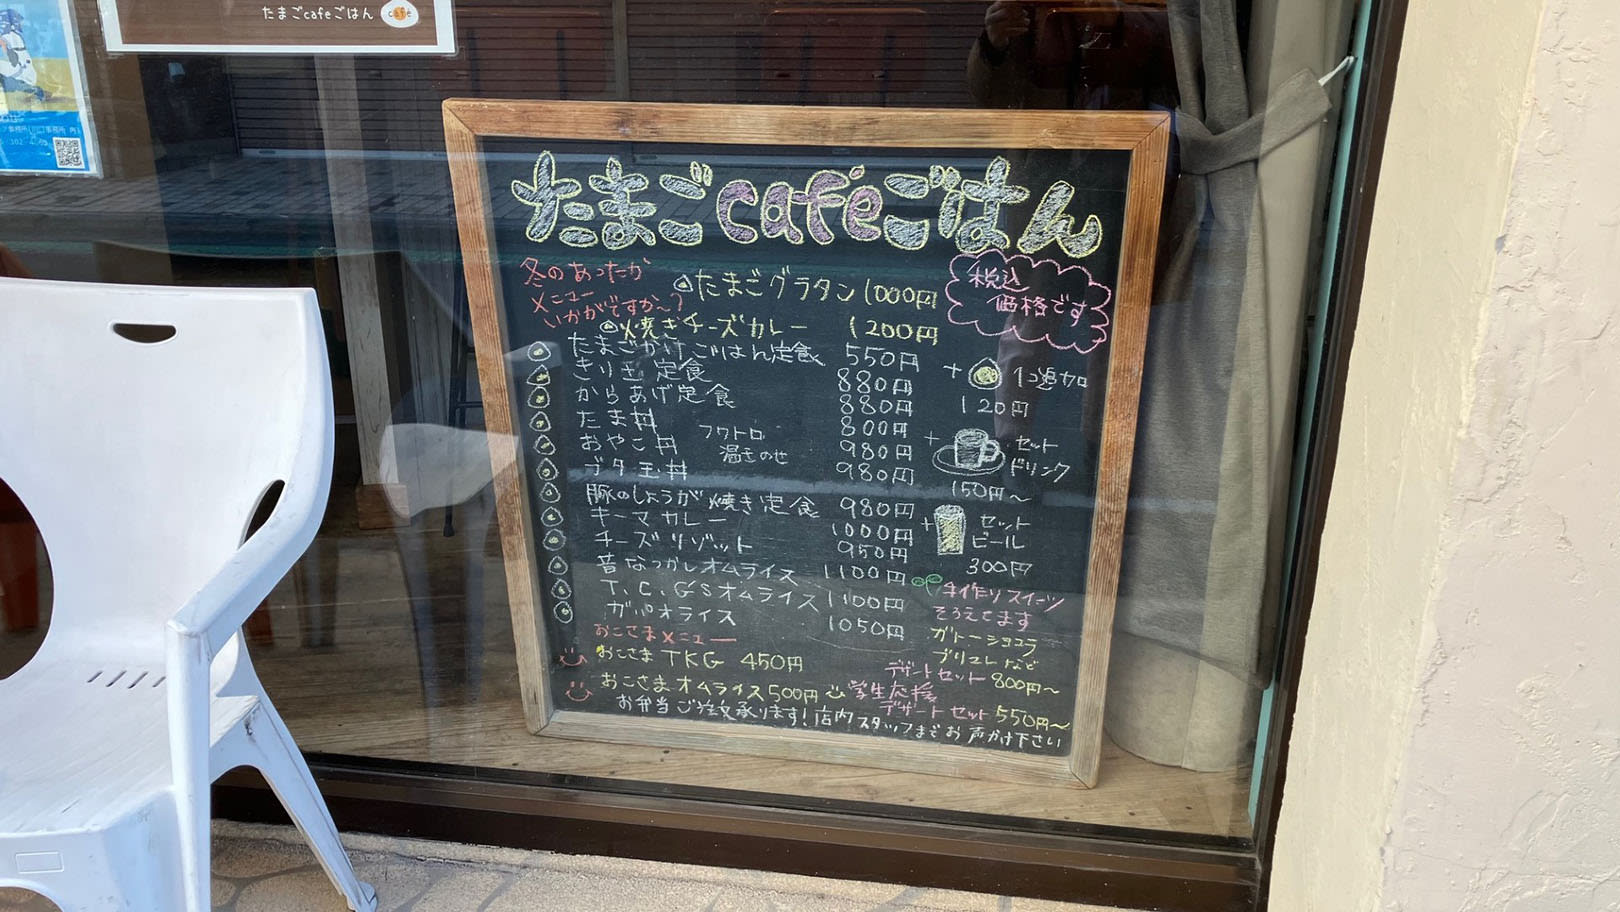 たまごcafeごはん cafe
たまごcaféごはん
冬のあったか
メニュー
いかがですか〜?
たまごグラタン 1000円
焼きチーズカレー 1200円
税込
価格です
たまごかけごはん定食 550円
きり玉定食 880円
からあげ定食 880円
たま丼 800円
おやこ丼 フワトロ 温玉のせ 980円
ブタ玉丼 980円
豚のしょうが焼き定食 980円
キーマカレー 1000円
チーズリゾット 950円
昔なつかしオムライス 1100円
T.C.G'Sオムライス 1100円
ガパオライス 1050円
+ 1コ追加
120円
+ セット
ドリンク
150円〜
+ セット
ビール
300円
手作りスイーツ
そろえてます
ガトーショコラ
ブリュレなど
デザートセット 800円〜
学生応援
デザートセット 550円〜
おこさまメニュー
おこさまTKG 450円
おこさまオムライス 500円
お弁当ご注文承ります!店内スタッフまでお声かけ下さい